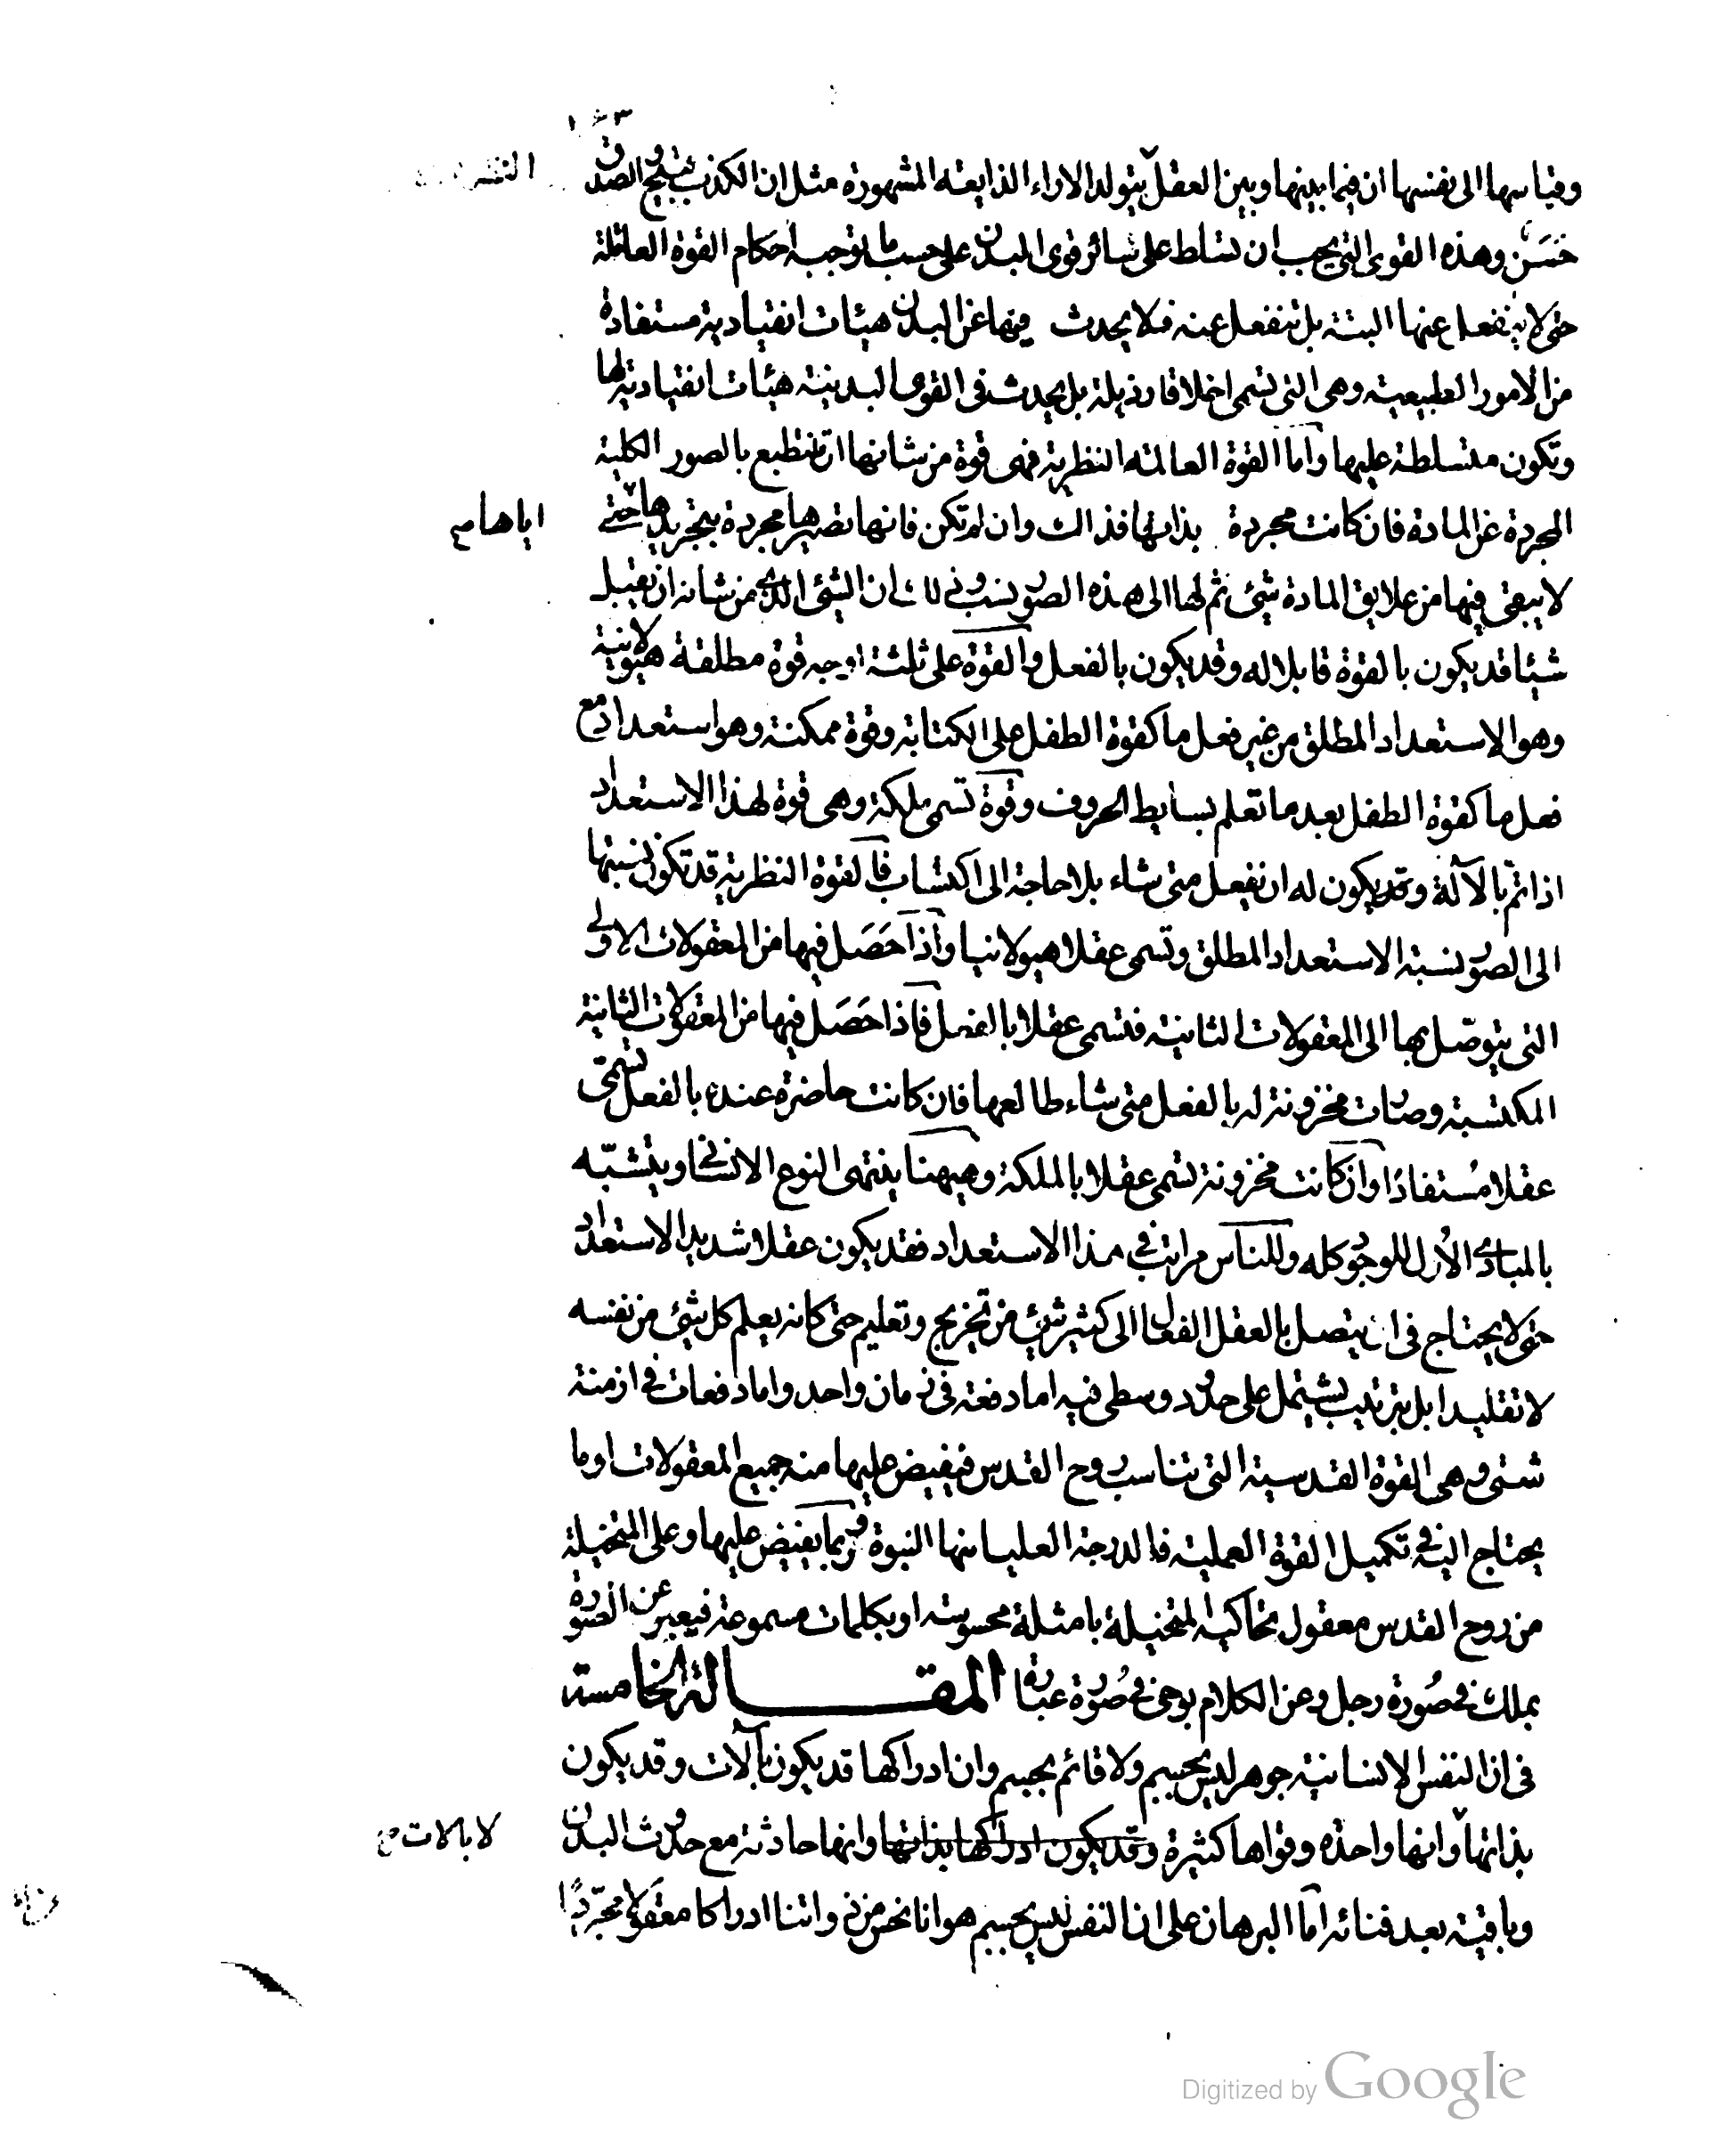 وقياسها الى نفسها ان فيما بينها وبين العقل يتولد الاراء الذايعة المشهورة مثل ان الكذب قبيح والصدق
حَسَن وهذه القوى التى يجب ان تسلط على سائر قوى البدن على حسب ما توجبه احكام القوة العاقلة
حتى لا ينفعل عنها البتة بل تنفعل عنه فلا يحدث فيها عن البدن هيئات انقيادية مستفادة
من الامور الطبيعية وهى التى تسمى اخلاقا رذيلة بل يحدث فى القوى البدنية هيئات انقيادية لها
وتكون متسلطة عليها واما القوة العالمة النظرية فهى قوة من شانها ان تنطبع بالصور الكلية
المجردة عن المادة فان كانت مجردة بذاتها فذاك وان لم تكن فانها تصيرها مجردة بتجريدها حتى
اياها صح
لا يبقى فيها من علايق المادة شيئ ثم لها الى هذه الصور نسب وذلك ان الشيئ الذى من شانه ان يقبل
شيئا قد يكون بالقوة قابلا له وقد يكون بالفعل والقوة على ثلثة اوجه قوة مطلقة هيولانية
وهو الاستعداد المطلق من غير فعل ما كقوة الطفل على الكتابة وقوة ممكنة وهو استعداد مع
فعل ما كقوة الطفل بعد ما تعلم بسايط الحروف وقوة تسمى ملكة وهى قوة لهذا الاستعداد
اذا تم بالآلة وقد يكون له ان يفعل متى شاء بلا حاجة الى اكتساب فالقوة النظرية قد تكون نسبتها
الى الصور نسبة الاستعداد المطلق وتسمى عقلا هيولانيا واذا حَصَل فيها من المعقولات الاولى
التى يتوصّل بها الى المعقولات الثانية فتسمى عقلا بالفعل فاذا حَصَل فيها من المعقولات الثانية
المكتسبة وصارت مخزونة له بالفعل متى شاء طالعها فان كانت حاضرة عنده بالفعل تسمى
عقلا مُستفادًا وان كانت مخزونة تسمى عقلا بالملكة وهيهنا ينتهى النوع الانسانى ويتشبّه
بالمبادى الاُول للوجود كله وللناس مراتب فى هذا الاستعداد فقد يكون عقلا شديد الاستعداد
حتى لا يحتاج فى ان يتصل بالعقل الفعال الى كثير شيئ من تخريج وتعليم حتى كانه يعلم كل شيئ من نفسه
لا تقليدا بل بترتيب يشتمل على حدود وسطى فيه اما دفعة فى زمان واحد واما دفعات فى ازمنة
شتى وهى القوة القدسية التى تناسب روح القدس فيفيض عليها منه جميع المعقولات او ما
يحتاج اليه فى تكميل القوة العملية فالدرجة العليا منها النبوة فربما يفيض عليها وعلى المتخيلة
من روح القدس معقول تحاكيه المتخيلة بامثلة محسوسة او بكلمات مسموعة فيعبر عن الصورة
بملك فى صُورة رجل وعن الكلام بوحى فى صُورة عبارة المقالة الخامسة
فى ان النفس الانسانية جوهر ليس بجسم ولا قائم بجسم وان ادراكها قد يكون بآلات وقد يكون
بذاتها وانها واحدة وقواها كثيرة وقد يكون ادراكها بذاتها وانها حادثة مع حدوث البدن
لا بالات صح
وباقية بعد فنائه اما البرهان على ان النفس ليس بجسم هو انا نحس من ذواتنا ادراكا معقولا مجرّدًا